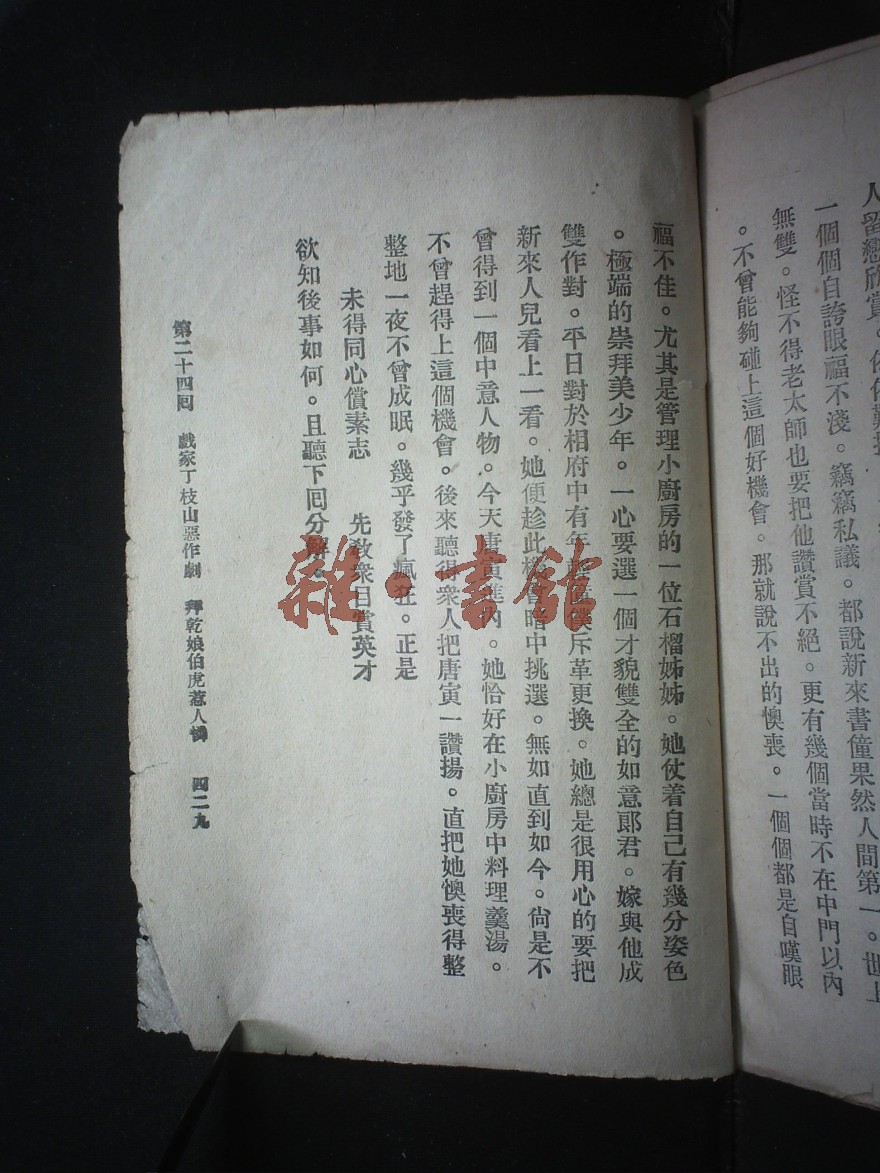 人留戀欣賞。依依難
一個個自誇眼福不淺。竊竊私議。都說新來書僮果然人間第一。世上
無雙。怪不得老太師也要把他讚賞不絕。更有幾個當時不在中門以內
。不曾能夠碰上這個好機會。那就說不出的懊喪。一個個都是自嘆眼
福不佳。尤其是管理小廚房的一位石榴姊姊。她仗着自己有幾分姿色
。極端的崇拜美少年。一心要選一個才貌雙全的如意郎君。嫁與他成
雙作對。平日對於相府中有年 僕斥革更換。她總是很用心的要把
新來人兒看上一看。她便趁此機會暗中挑選。無如直到如今。尙是不
曾得到一個中意人物。今天唐寅進內。她恰好在小廚房中料理羹湯。
不曾趕得上這個機會。後來聽得衆人把唐寅一讚揚。直把她懊喪得整
整地一夜不曾成眠。幾乎發了瘋狂。正是
未得同心償素志 先敎衆目賞英才
欲知後事如何。且聽下囘分解。
第二十四囘 戲家丁枝山惡作劇 拜乾娘伯虎惹人憐 四二九
雜·書館